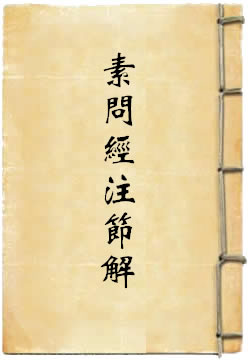 素問經注節解